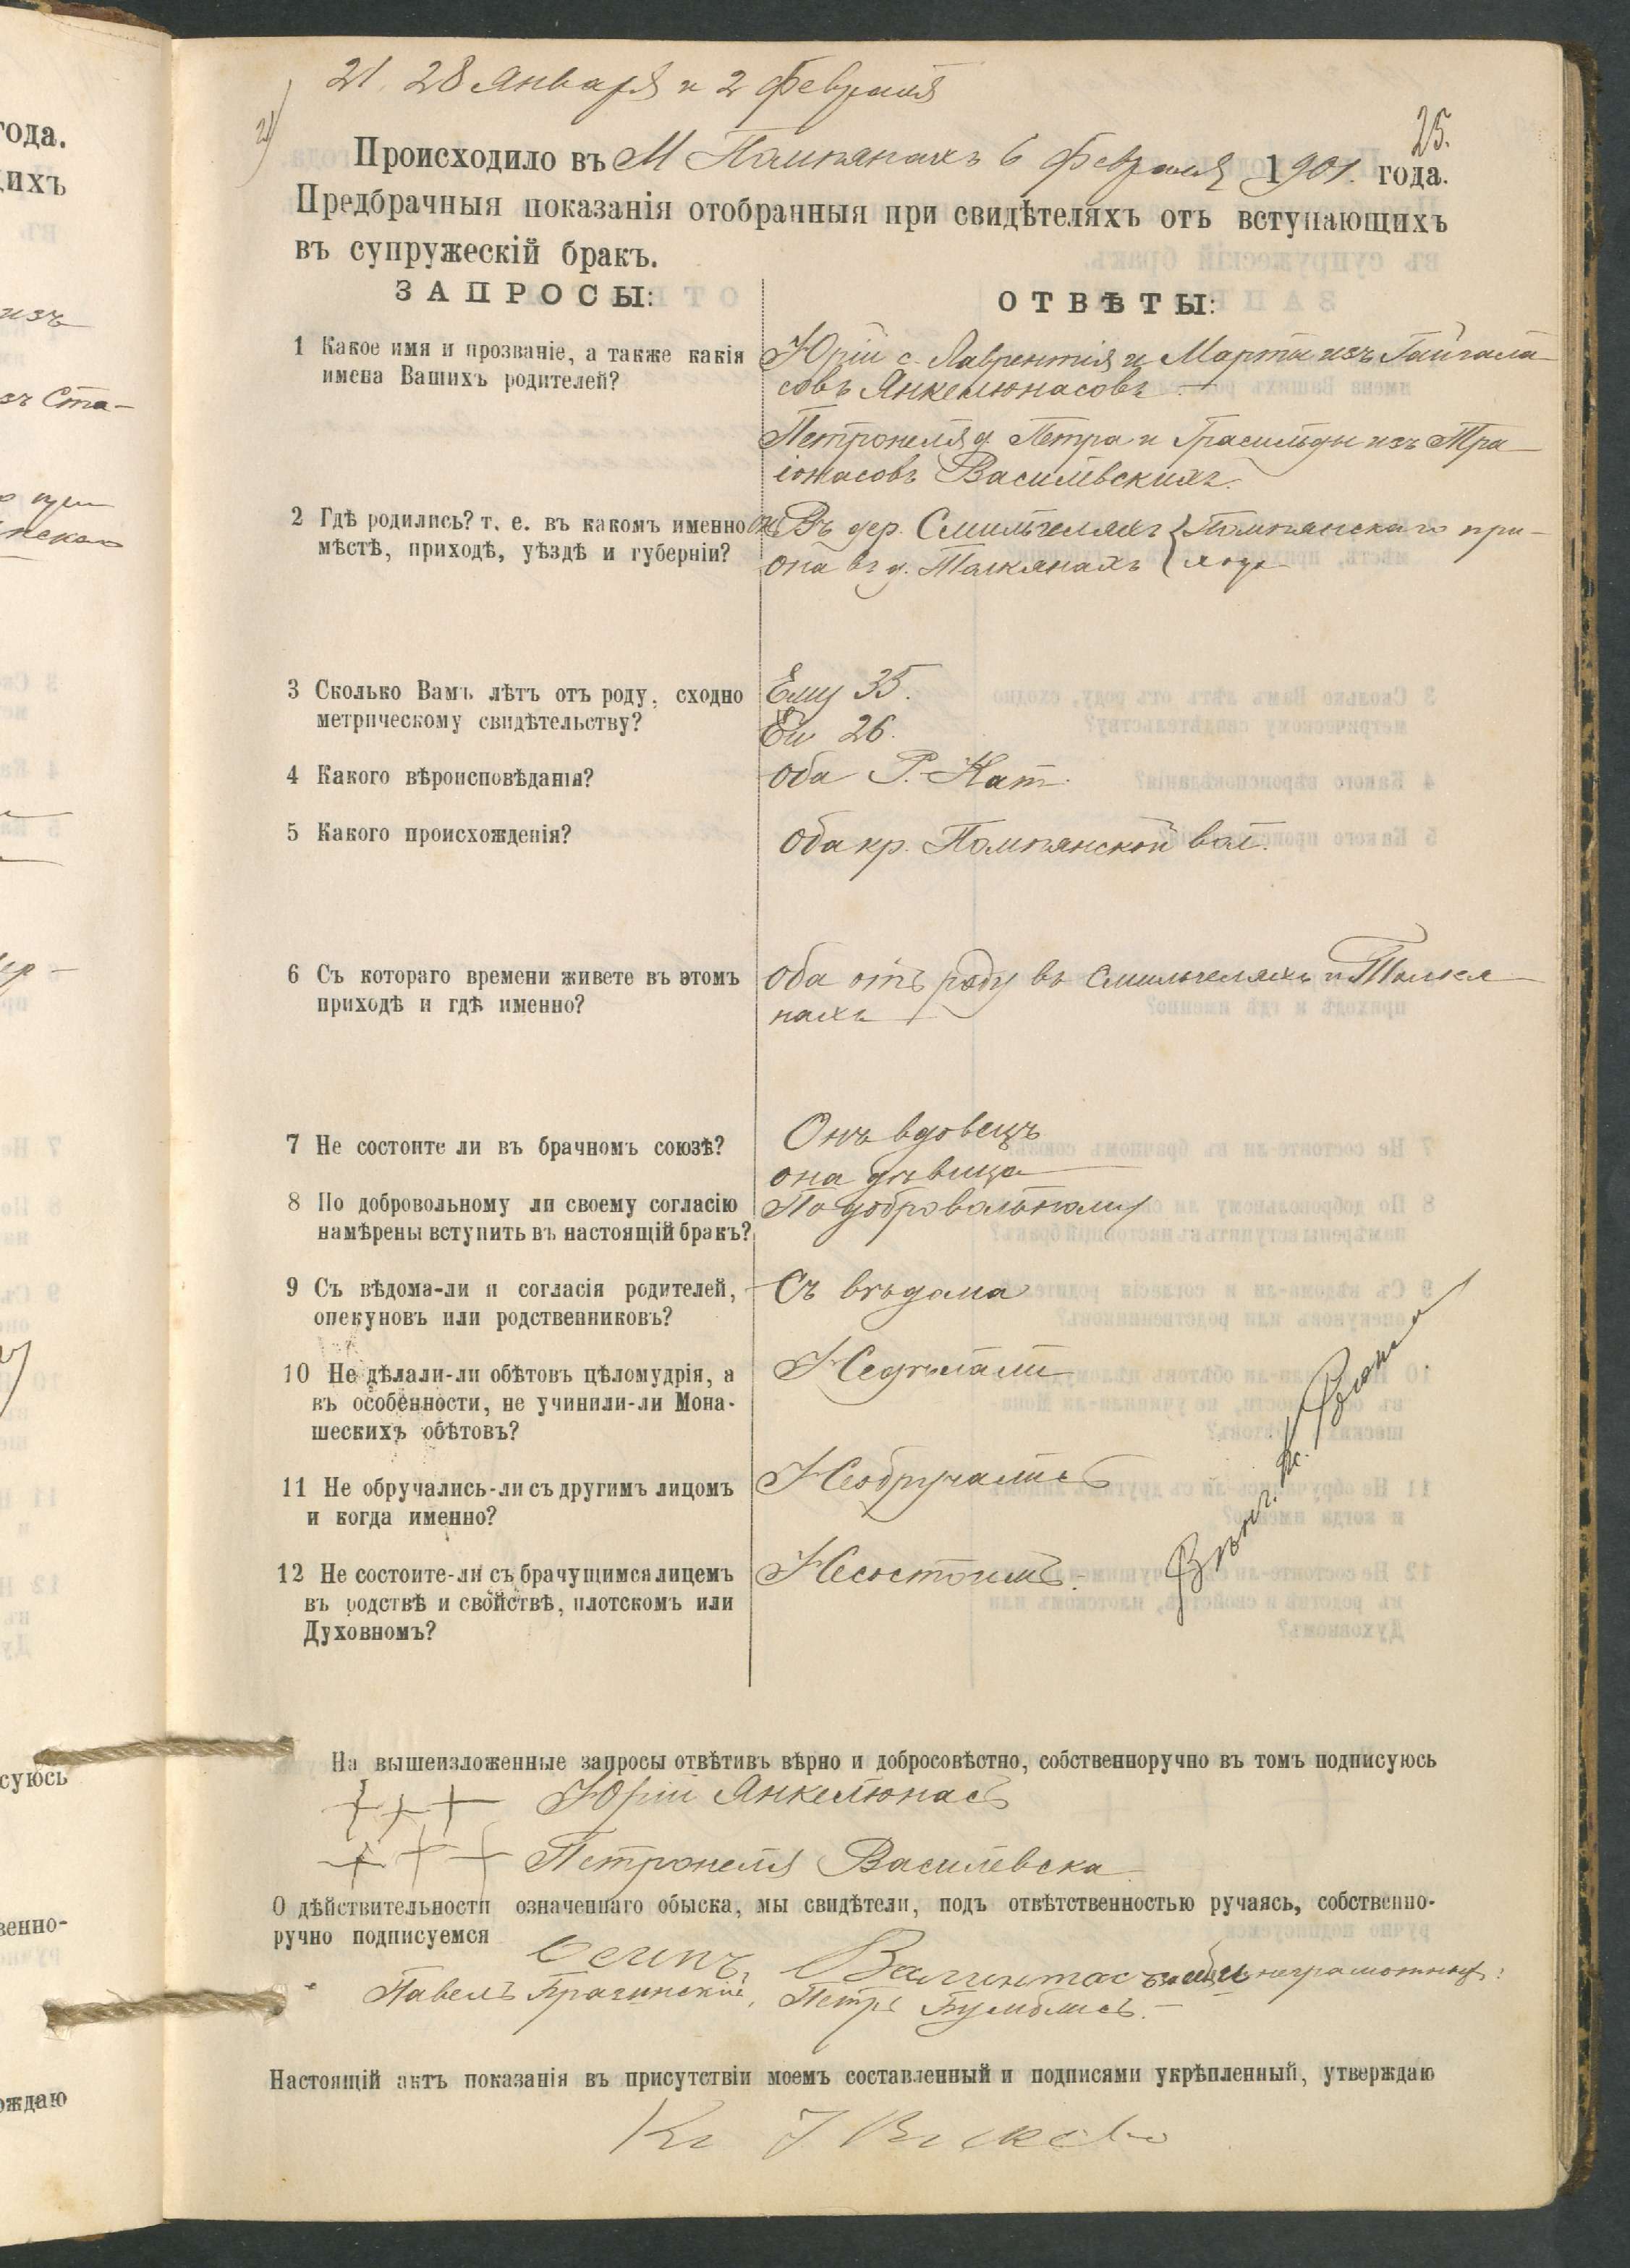 21, 28 Января и 2 Февраля
21)
25.
Происходило въ М Помпянахъ 6 Февраля 1901. года.
Предбрачныя показанія отобранныя при свидѣтеляхъ отъ вступающихъ
въ супружескій бракъ.
ЗАПРОСЫ:
ОТВѢТЫ:
1 Какое имя и прозваніе, а также какія
имена Вашихъ родителей?
Юрій с. Лаврентія и Марты изъ Гайгала-
совъ Янкелюнасовъ
Петронеля д. Петра и Грасильды изъ Тра-
іонасовъ Василевскихъ.
2 Гдѣ родились? т. е. въ какомъ именно
мѣстѣ, приходѣ, уѣздѣ и губерніи?
Онъ Въ дер. Смильгеляхъ { Помпянскаго при-
она въ д. Талкянахъ { хода
3 Сколько Вамъ лѣтъ отъ роду, сходно
метрическому свидѣтельству?
Ему 35.
Ей 26.
4 Какого вѣроисповѣданія?
Оба Р. Кат.
5 Какого происхожденія?
Оба кр. Помпянской вол.
6 Съ котораго времени живете въ этомъ
приходѣ и гдѣ именно?
Оба отъ роду въ Смильгеляхъ и Талкя-
нахъ
7 Не состоите ли въ брачномъ союзѣ?
Онъ вдовецъ
она дѣвица
8 По добровольному ли своему согласію
намѣрены вступить въ настоящій бракъ?
По добровольному
9 Съ вѣдома-ли и согласія родителей,
опекуновъ или родственниковъ?
Съ вѣдома
10 Не дѣлали-ли обѣтовъ цѣломудрія, а
въ особенности, не учинили-ли Мона-
шескихъ обѣтовъ?
Недѣлали
11 Не обручались-ли съ другимъ лицомъ
и когда именно?
Необручались
12 Не состоите-ли съ брачущимся лицемъ
въ родствѣ и свойствѣ, плотскомъ или
Духовномъ?
Несостоимъ.
На вышеизложенные запросы отвѣтивъ вѣрно и добросовѣстно, собственноручно въ томъ подписуюсь
+++ Юрій Янкелюнасъ
+++ Петронеля Василевска
О дѣйствительности означеннаго обыска, мы свидѣтели, подъ отвѣтственностью ручаясь, собственно-
ручно подписуемся
Осипъ Валинтасъ неграмотныхъ:
Павелъ Брагинскій, Петръ Бумблисъ.
Настоящій актъ показанія въ присутствіи моемъ составленный и подписями укрѣпленный, утверждаю
года.
ихъ
изъ
Ста-
суюсь
венно-
рждаю